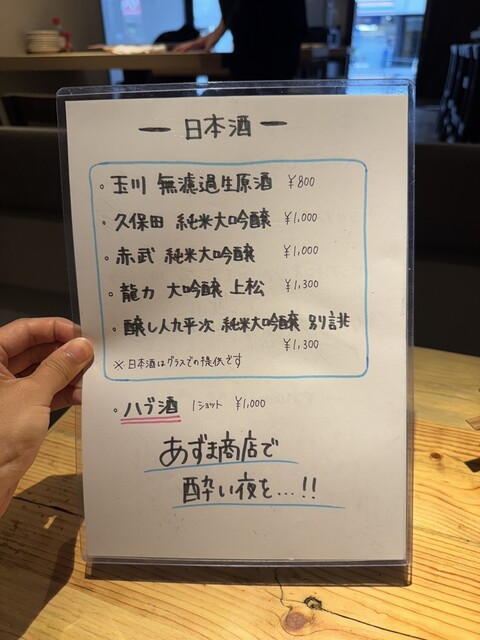 ー 日本酒 ー
・玉川 無濾過生原酒 ¥800
・久保田 純米大吟醸 ¥1,000
・赤武 純米大吟醸 ¥1,000
・龍力 大吟醸 上松 ¥1,300
・醸し人九平次 純米大吟醸 別り誂
¥1,300
※日本酒はグラスでの提供です
・ハブ酒 1ショット ¥1,000
あずま商店で
酔い夜を…!!